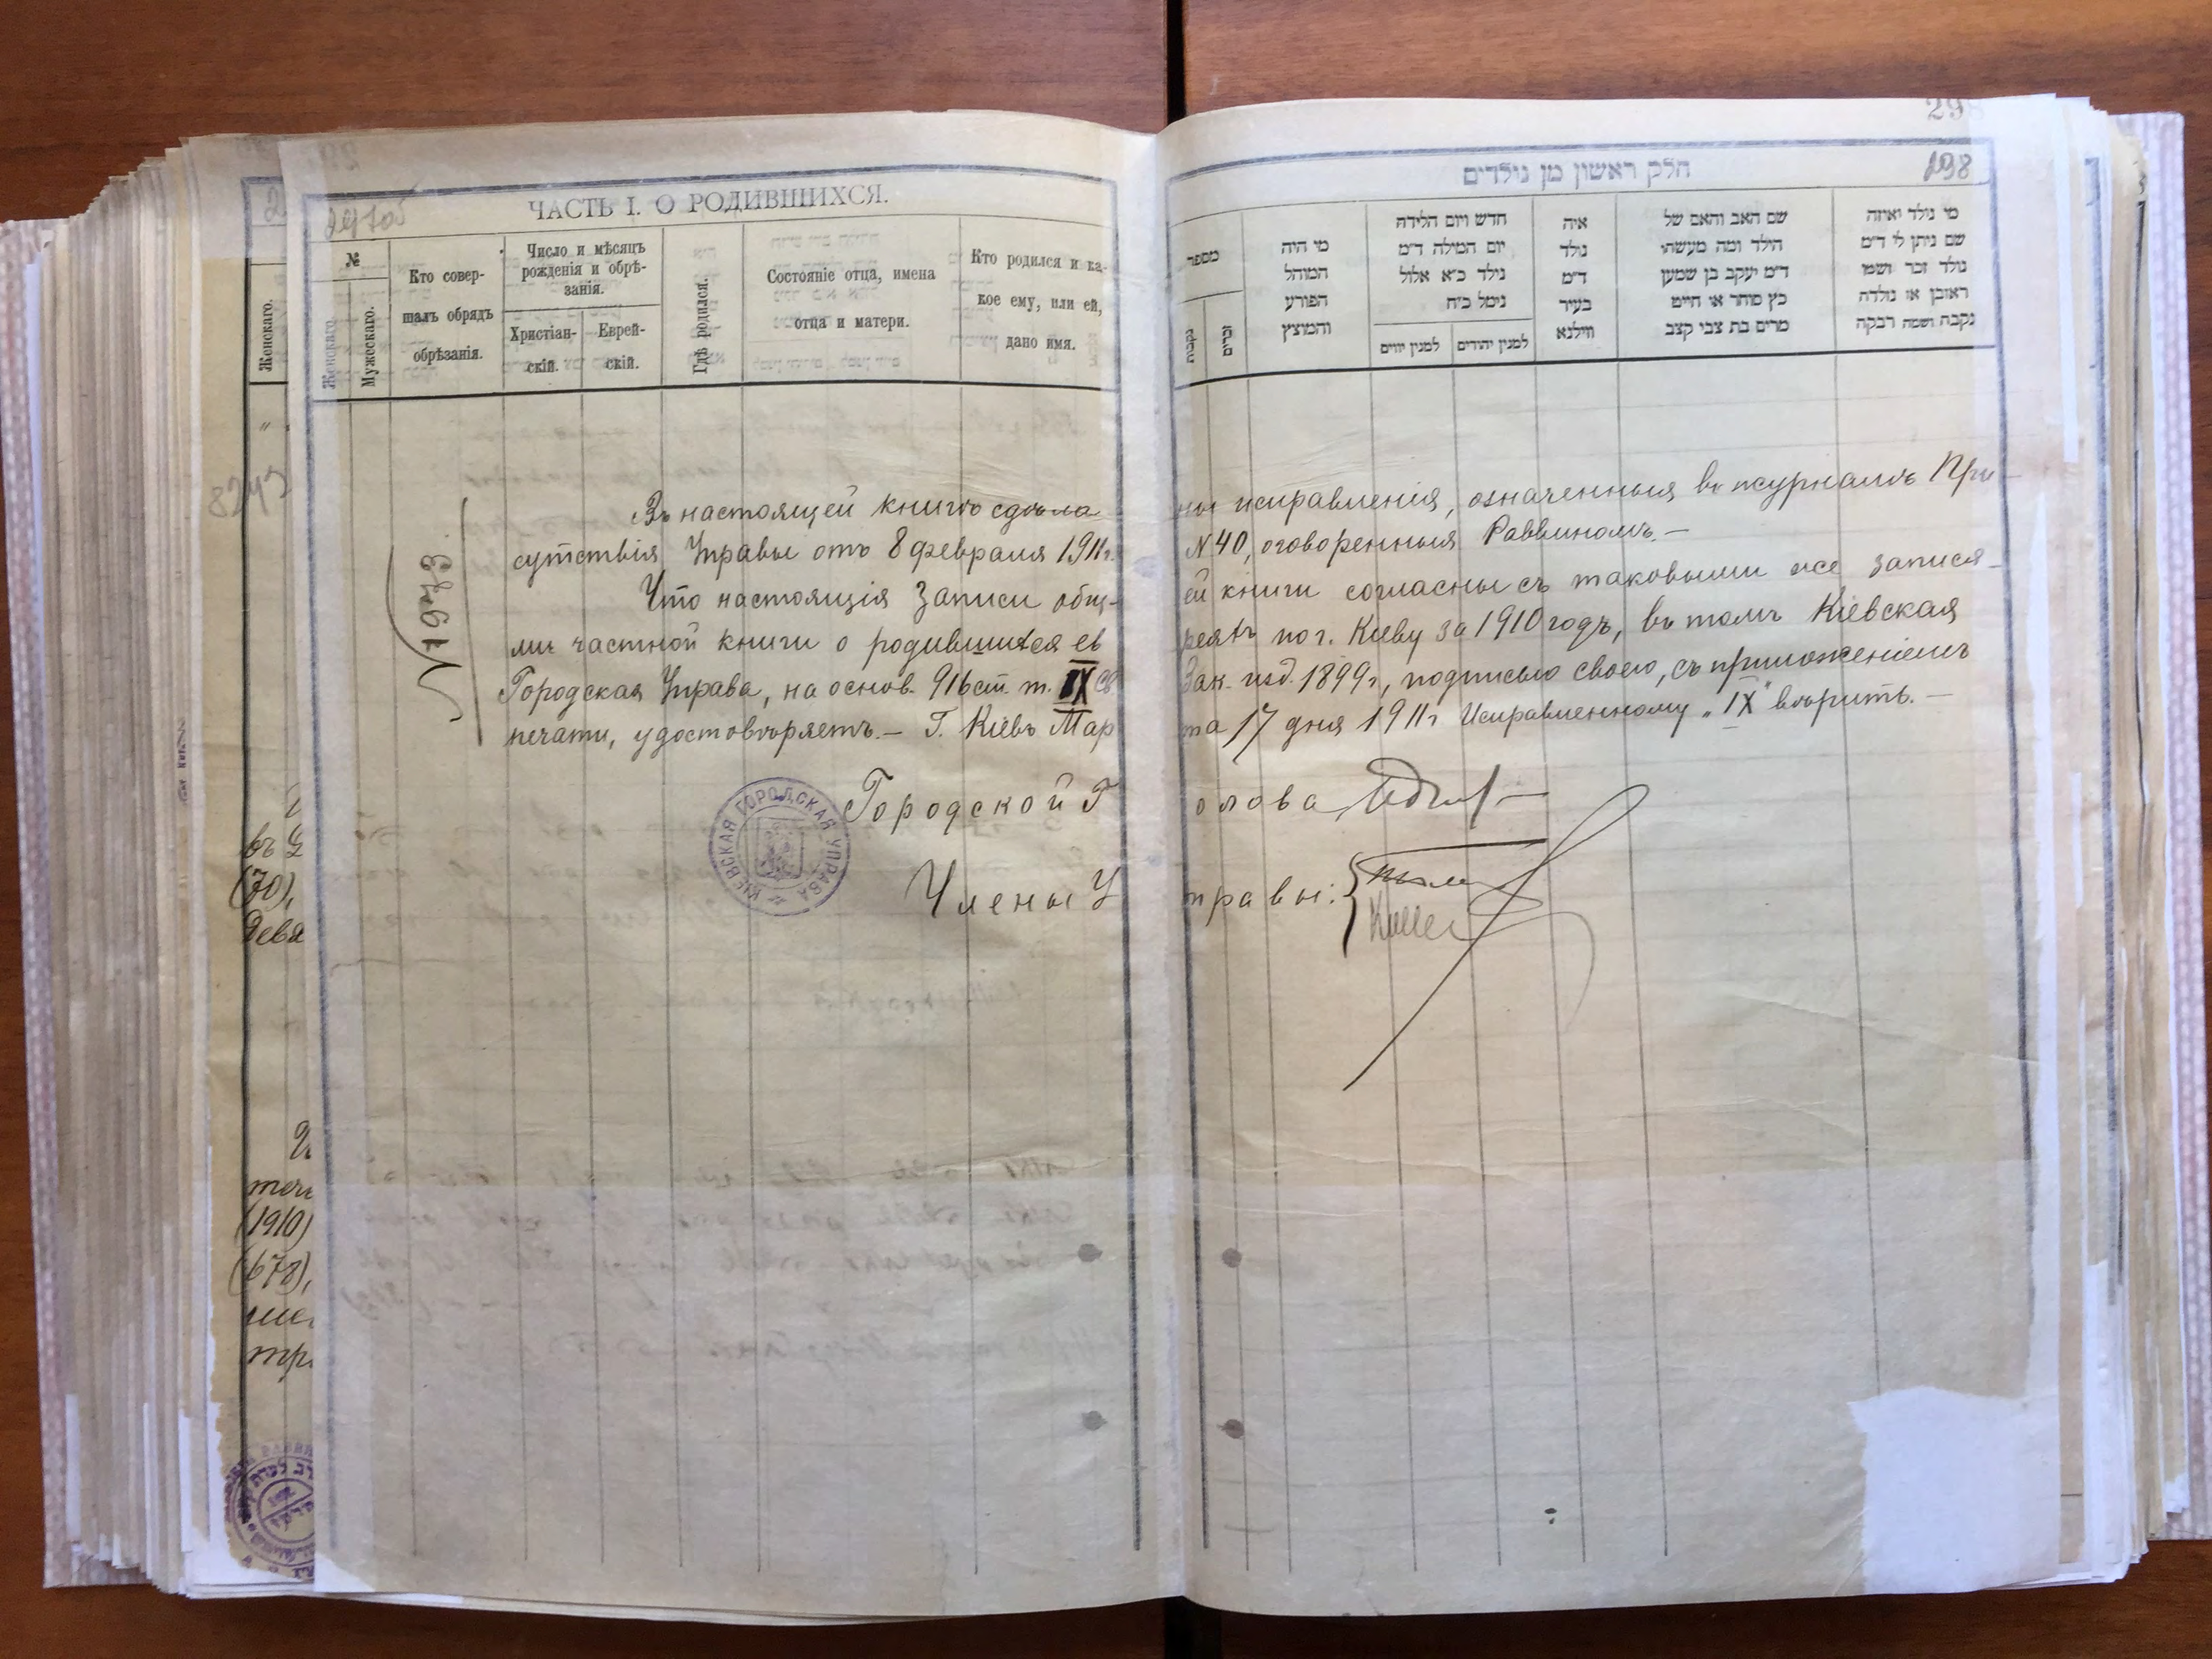 297об
ЧАСТЬ I. О РОДИВШИХСЯ.
№
Женскаго.
Мужескаго.
Кто совер-
шалъ обрядъ
обрѣзанія.
Число и мѣсяцъ
рожденія и обрѣ-
занія.
Христіан-
скій.
Еврей-
скій.
Гдѣ родился.
Состояніе отца, имена
отца и матери.
Кто родился и ка-
кое ему, или ей,
дано имя.
298
חלק ראשון מן נולדים
מספר
נקבות
זכרים
מי היה
המוהל
הפורע
והמוצץ
חדש ויום הלידה
יום המילה ד״מ
נילד כ״א אלול
נימל כ״ח
למנין יונים
למנין יהודים
איה
נולד
ד״מ
בעיר
ווילנא
שם האב והאם של
הילד ומה מעשהו
ד״מ יעקב בן שמעון
כץ סוחר או חייט
מרים בת צבי קצב
מי נולד ואיזה
שם ניתן לו ד״מ
נולד זכר ושמו
ראובן או נולדה
נקבה ושמה רבקה
Въ настоящей книгѣ сдѣла ны исправленія, означенныя въ журналѣ При-
сутствія Управы отъ 8 февраля 1911г. N 40, оговоренныя Раввиномъ.—
Что настоящія Записи общ- ей книги согласны съ таковыми же запися-
ми частной книги о родившихся ев реяхъ по г. Кіеву за 1910 годъ, въ томъ Кіевская
Городская Управа, на основ. 916 ст. т. IX Св Зак. изд. 1899г., подписью своею, съ приложеніемъ
печати, удостовѣряетъ.— Г. Кіевъ Мар та 17 дня 1911г. Исправленному „IX" вѣрить.—
Городской Г олова
Члены У правы:
КІЕВСКАЯ ГОРОДСКАЯ УПРАВА
N 1943.
Женскаго.
8243
въ
(70),
девя
(1910)
(678),